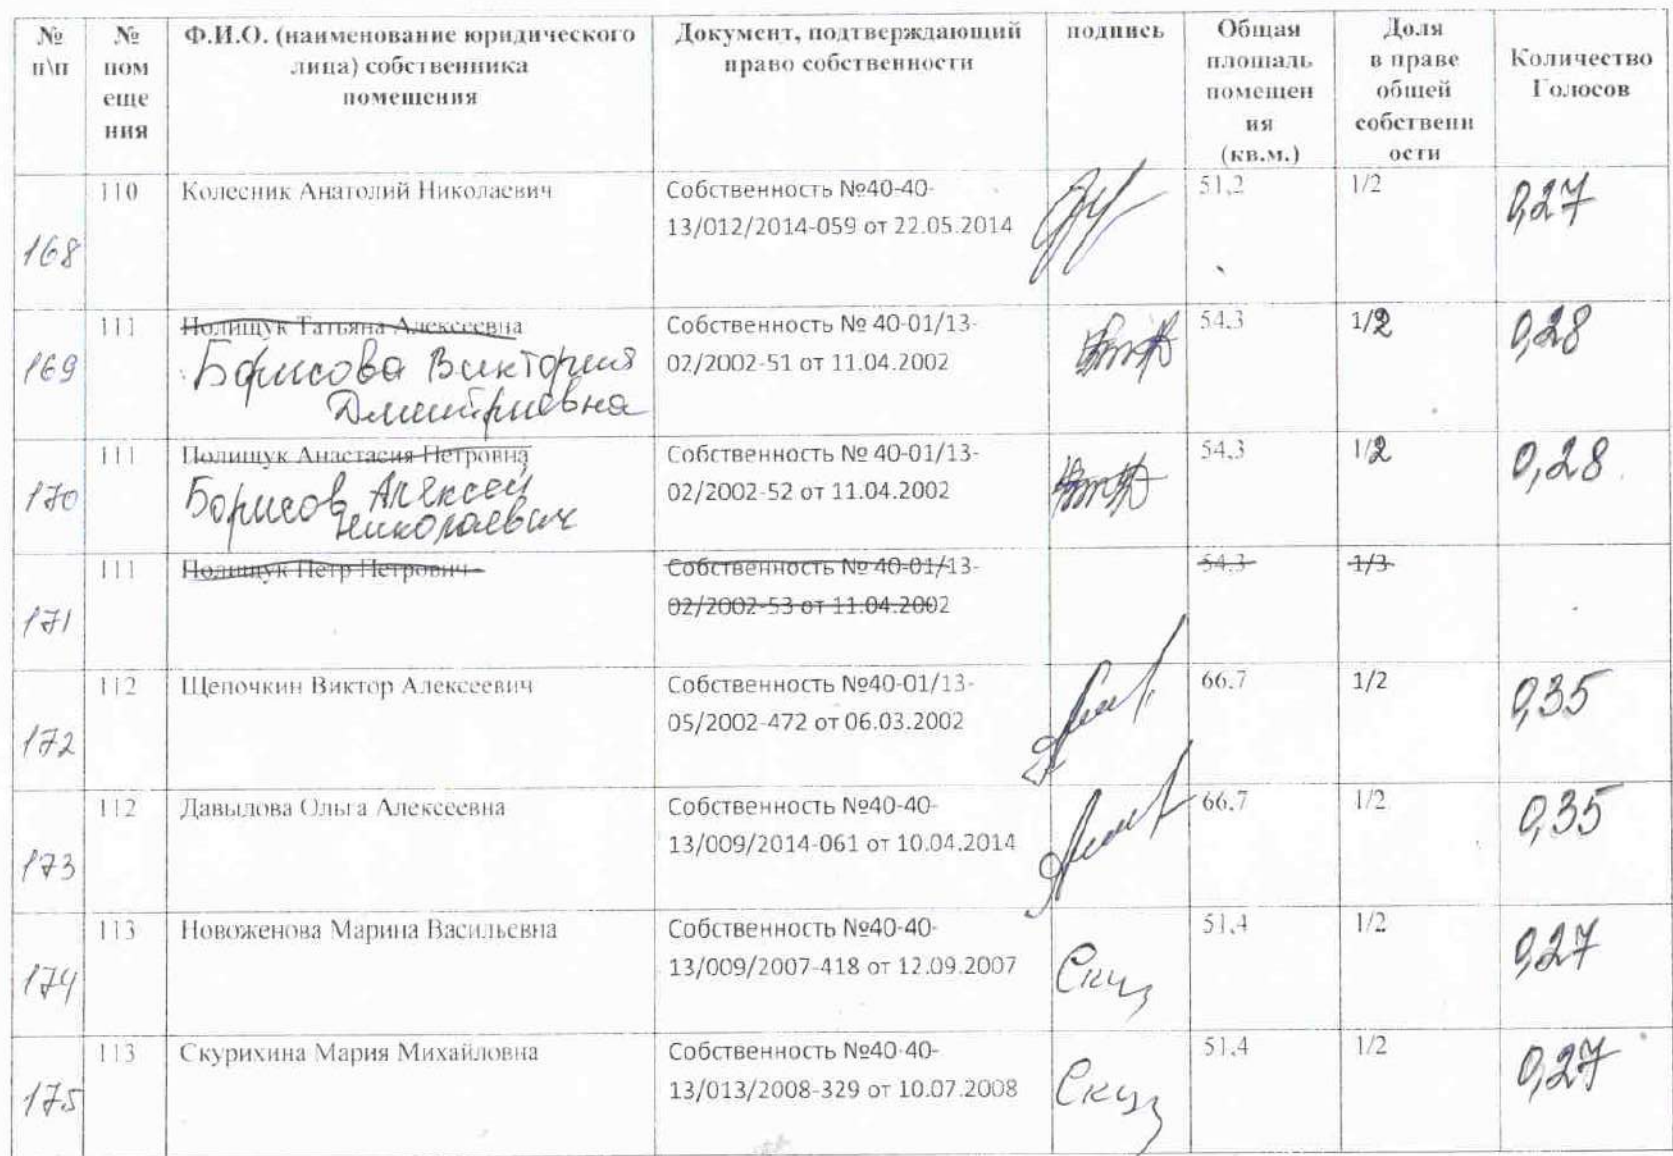 № п\п
№ пом еще ния
Ф.И.О. (наименование юридического лица) собственника помещения
Документ, подтверждающий право собственности
подпись
Общая площадь помещен ия (кв.м.)
Доля в праве общей собственн ости
Количество Голосов
168
110
Колесник Анатолий Николаевич
Собственность №40-40-
13/012/2014-059 от 22.05.2014
51,2
1/2
0,27
169
111
Полищук Татьяна Алексеевна
Борисова Виктория
Дмитриевна
Собственность № 40-01/13-
02/2002-51 от 11.04.2002
54,3
1/2
0,28
170
111
Полищук Анастасия Петровна
Борисов Алексей
Николаевич
Собственность № 40-01/13-
02/2002-52 от 11.04.2002
54,3
1/2
0,28
171
111
Полищук Петр Петрович
Собственность № 40-01/13-
02/2002-53 от 11.04.2002
54,3
1/3
172
112
Щепочкин Виктор Алексеевич
Собственность №40-01/13-
05/2002-472 от 06.03.2002
66,7
1/2
0,35
173
112
Давыдова Ольга Алексеевна
Собственность №40-40-
13/009/2014-061 от 10.04.2014
66,7
1/2
0,35
174
113
Новоженова Марина Васильевна
Собственность №40-40-
13/009/2007-418 от 12.09.2007
51,4
1/2
0,27
175
113
Скурихина Мария Михайловна
Собственность №40-40-
13/013/2008-329 от 10.07.2008
51,4
1/2
0,27